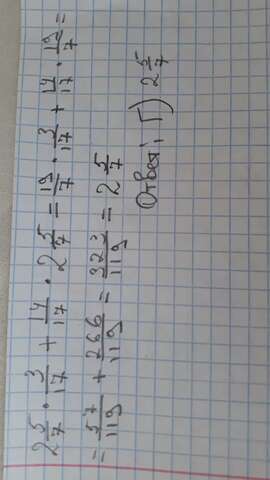 2 5/7 · 3/17 + 14/17 · 2 5/7 = 19/7 · 3/17 + 14/17 · 19/7 =
= 57/119 + 266/119 = 323/119 = 2 5/7
Ответ: Г) 2 5/7